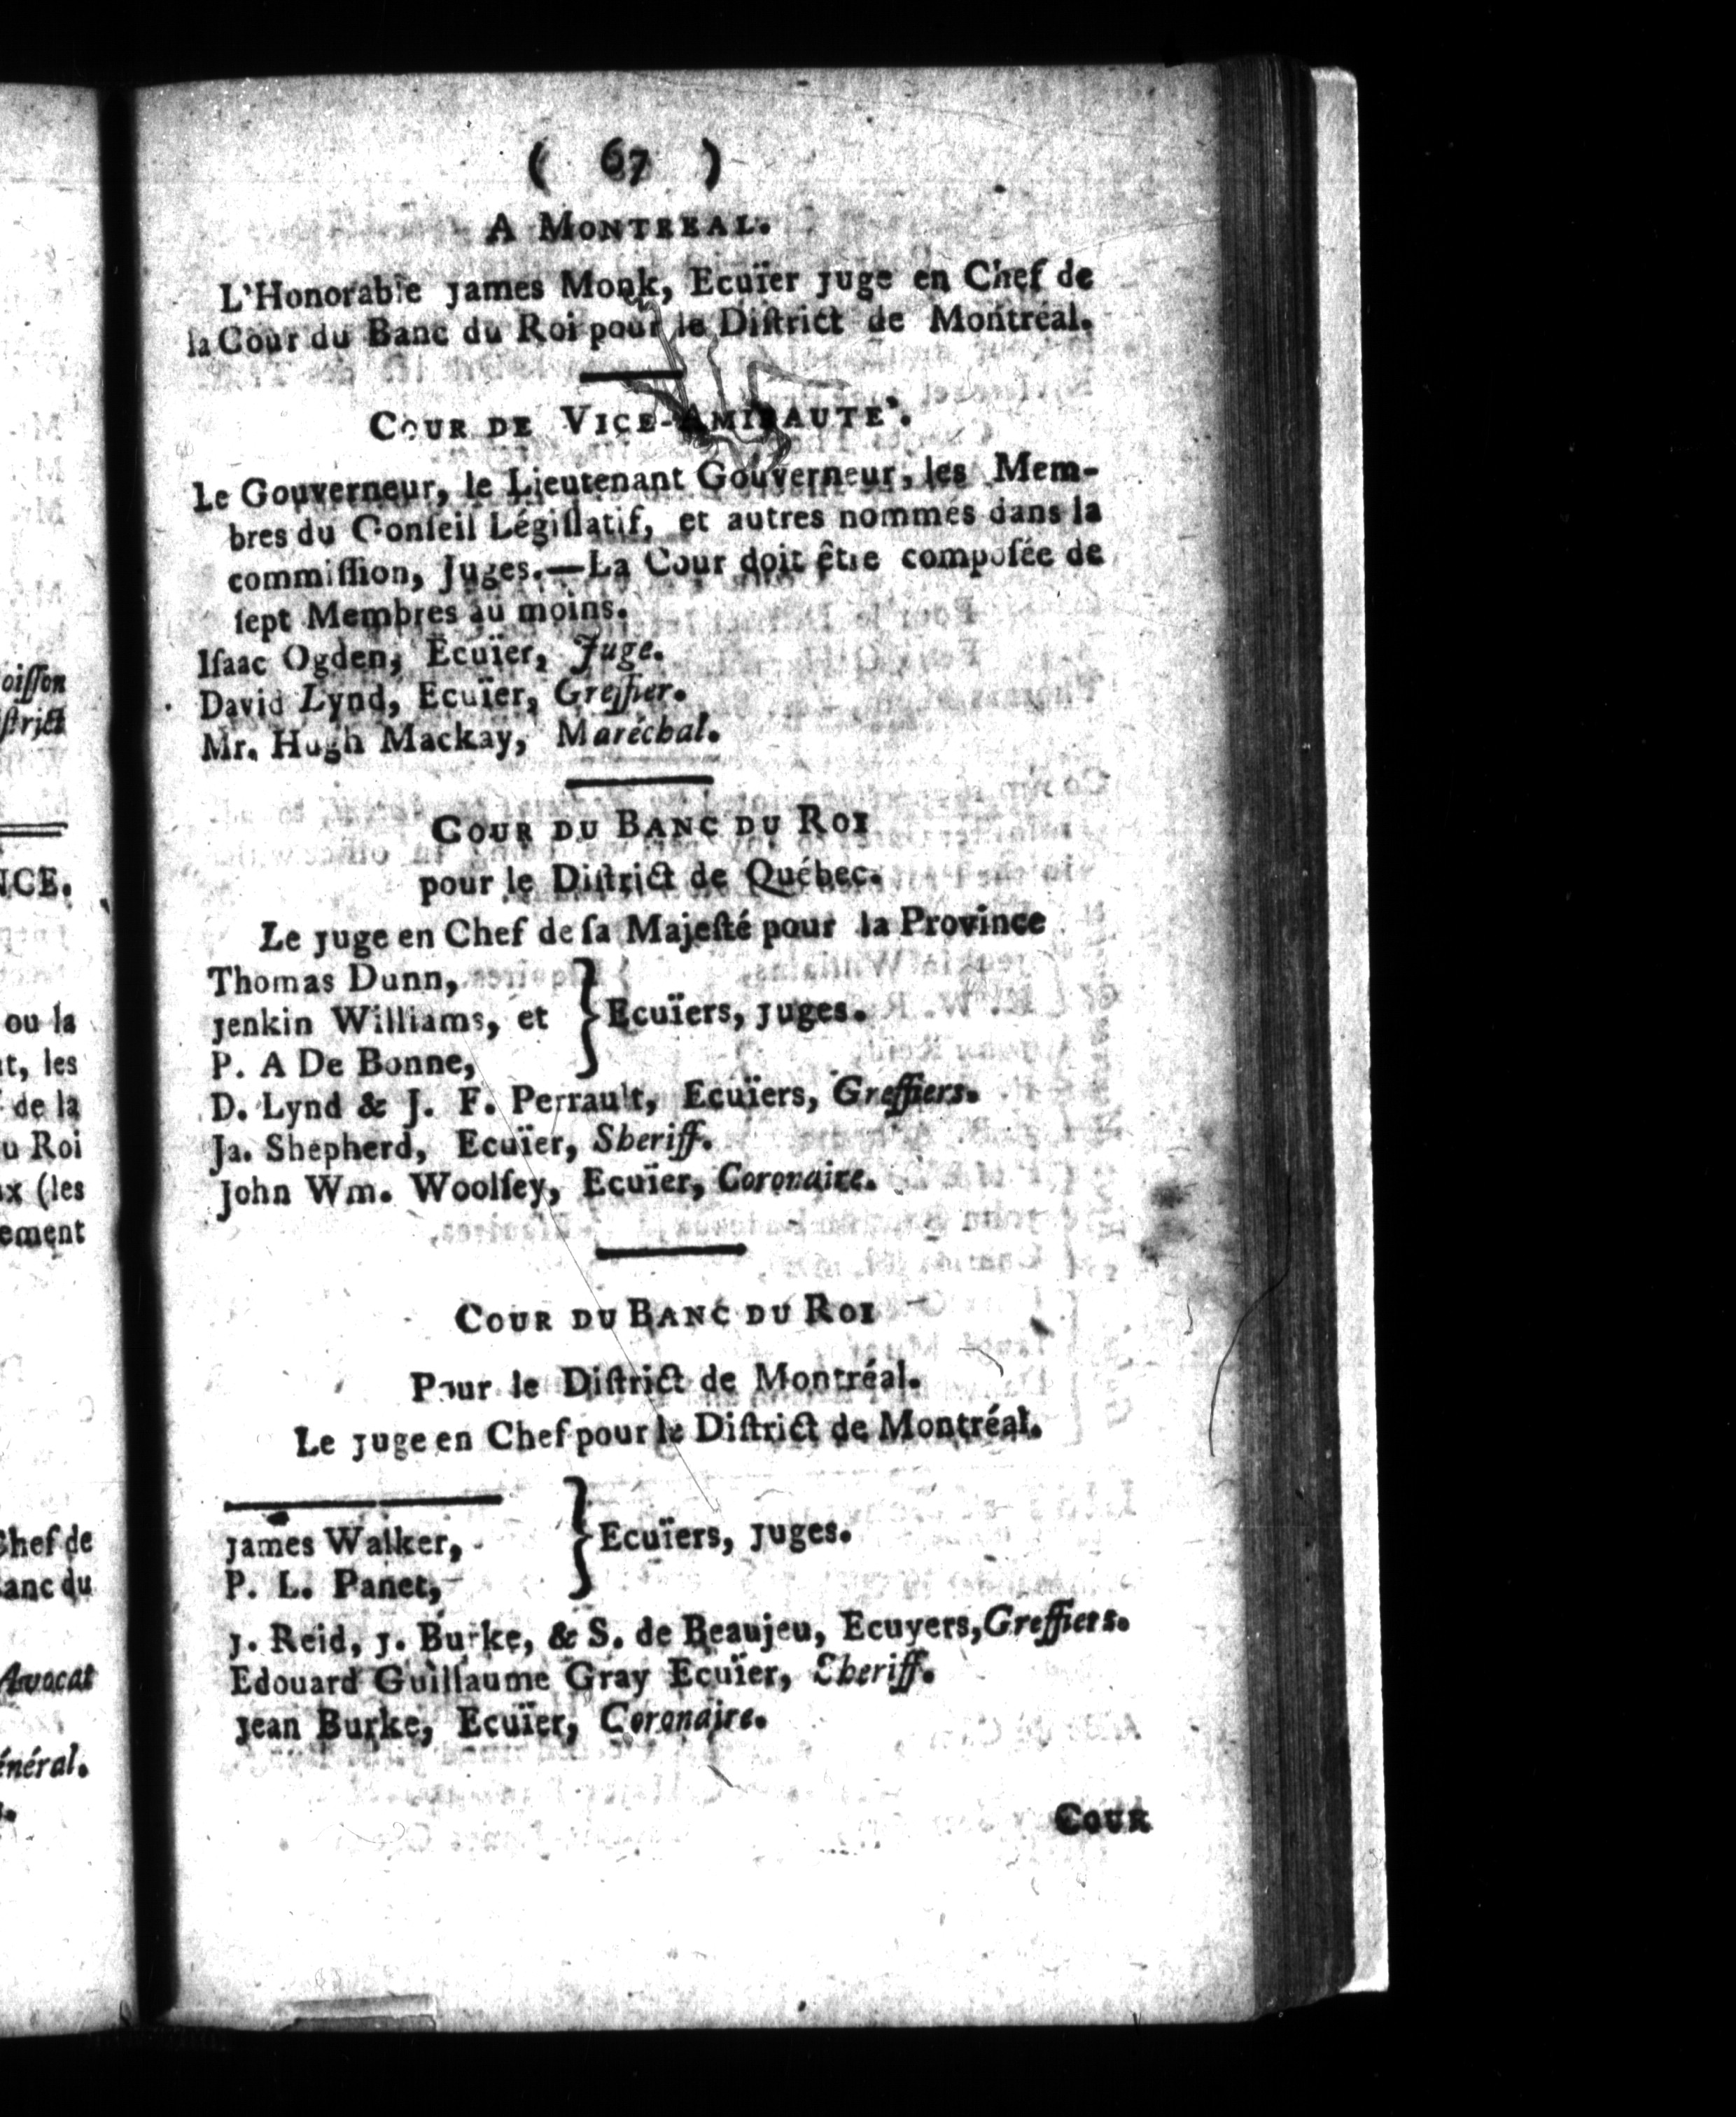 ( 67 )
A MONTREAL.
L'Honorable James Monk, Ecuïer Juge en Chef de
la Cour du Banc du Roi pour le Diſtrict de Montréal.
COUR DE VICE-AMIRAUTE'.
Le Gouverneur, le Lieutenant Gouverneur, les Mem-
bres du Conſeil Légiſlatif, et autres nommés dans la
commiſſion, Juges.—La Cour doit être compoſée de
ſept Membres au moins.
Iſaac Ogden, Ecuïer, Juge.
David Lynd, Ecuïer, Greffier.
Mr. Hugh Mackay, Maréchal.
COUR DU BANC DU ROI
pour le Diſtrict de Québec.
Le Juge en Chef de ſa Majeſté pour la Province
Thomas Dunn,
Jenkin Williams, et } Ecuïers, Juges.
P. A De Bonne,
D. Lynd & J. F. Perrault, Ecuïers, Greffiers.
Ja. Shepherd, Ecuïer, Sheriff.
John Wm. Woolſey, Ecuïer, Coronaire.
COUR DU BANC DU ROI
Pour le Diſtrict de Montréal.
Le Juge en Chef pour le Diſtrict de Montréal.
James Walker, } Ecuïers, Juges.
P. L. Panet,
J. Reid, J. Burke, & S. de Beaujeu, Ecuyers, Greffiers.
Edouard Guillaume Gray Ecuïer, Sheriff.
Jean Burke, Ecuïer, Coronaire.
COUR